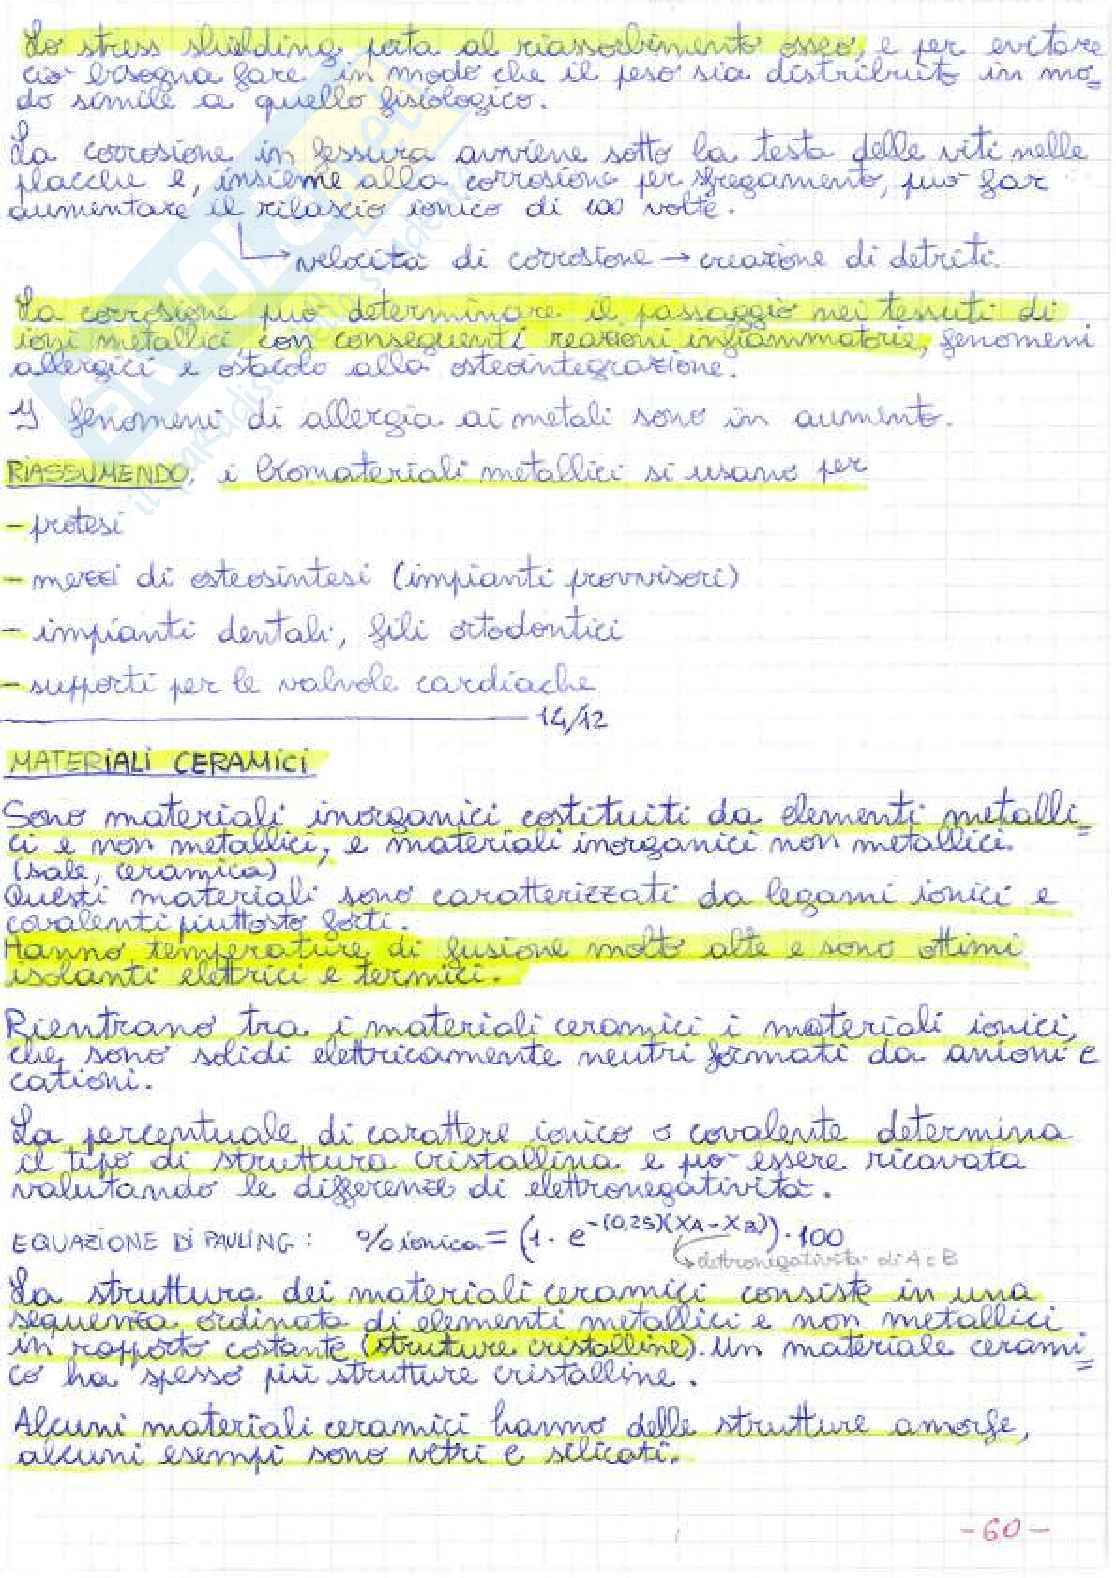 Lo stress shielding porta al riassorbimento osseo, e per evitare
ciò bisogna fare in modo che il peso sia distribuito in mo=
do simile a quello fisiologico.
La corrosione in fessura avviene sotto la testa delle viti nelle
placche e, insieme alla corrosione per sfregamento, può far
aumentare il rilascio ionico di 100 volte.
→ velocità di corrosione → creazione di detriti.
La corrosione può determinare il passaggio nei tessuti di
ioni metallici con conseguenti reazioni infiammatorie, fenomeni
allergici e ostacolo alla osteointegrazione.
I fenomeni di allergia ai metali sono in aumento.
RIASSUMENDO, i biomateriali metallici si usano per
- protesi
- mezzi di osteosintesi (impianti provvisori)
- impianti dentali, fili ortodontici
- supporti per le valvole cardiache
14/12
MATERIALI CERAMICI
Sono materiali inorganici costituiti da elementi metalli=
ci e non metallici, e materiali inorganici non metallici.
(sale, ceramica)
Questi materiali sono caratterizzati da legami ionici e
covalenti piuttosto forti.
Hanno temperature di fusione molto alte e sono ottimi
isolanti elettrici e termici.
Rientrano tra i materiali ceramici i materiali ionici,
che sono solidi elettricamente neutri formati da anioni e
cationi.
La percentuale di carattere ionico o covalente determina
il tipo di struttura cristallina e può essere ricavata
valutando le differenze di elettronegatività.
EQUAZIONE DI PAULING: % ionica = (1 - e^-(0,25)(XA-XB)) · 100
→ elettronegatività di A e B
La struttura dei materiali ceramici consiste in una
sequenza ordinata di elementi metallici e non metallici
in rapporto costante (strutture cristalline). Un materiale cerami=
co ha spesso più strutture cristalline.
Alcuni materiali ceramici hanno delle strutture amorfe,
alcuni esempi sono vetri e silicati.
- 60 -